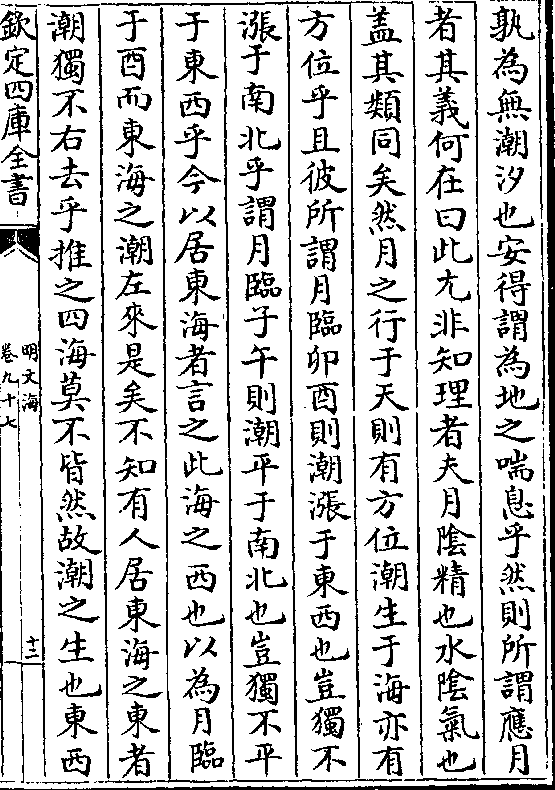 孰為無潮汐也安得謂為地之喘息乎然則所謂應月
者其義何在曰此尤非知理者夫月陰精也水陰氣也
盖其類同矣然月之行于天則有方位潮生于海亦有
方位乎且彼所謂月臨卯酉則潮漲于東西也豈獨不
漲于南北乎謂月臨子午則潮平于南北也豈獨不平
于東西乎今以居東海者言之此海之西也以為月臨
于酉而東海之潮左來是矣不知有人居東海之東者
潮獨不右去乎推之四海莫不皆然故潮之生也東西
欽定四庫全書
明文海
卷九十七
十二